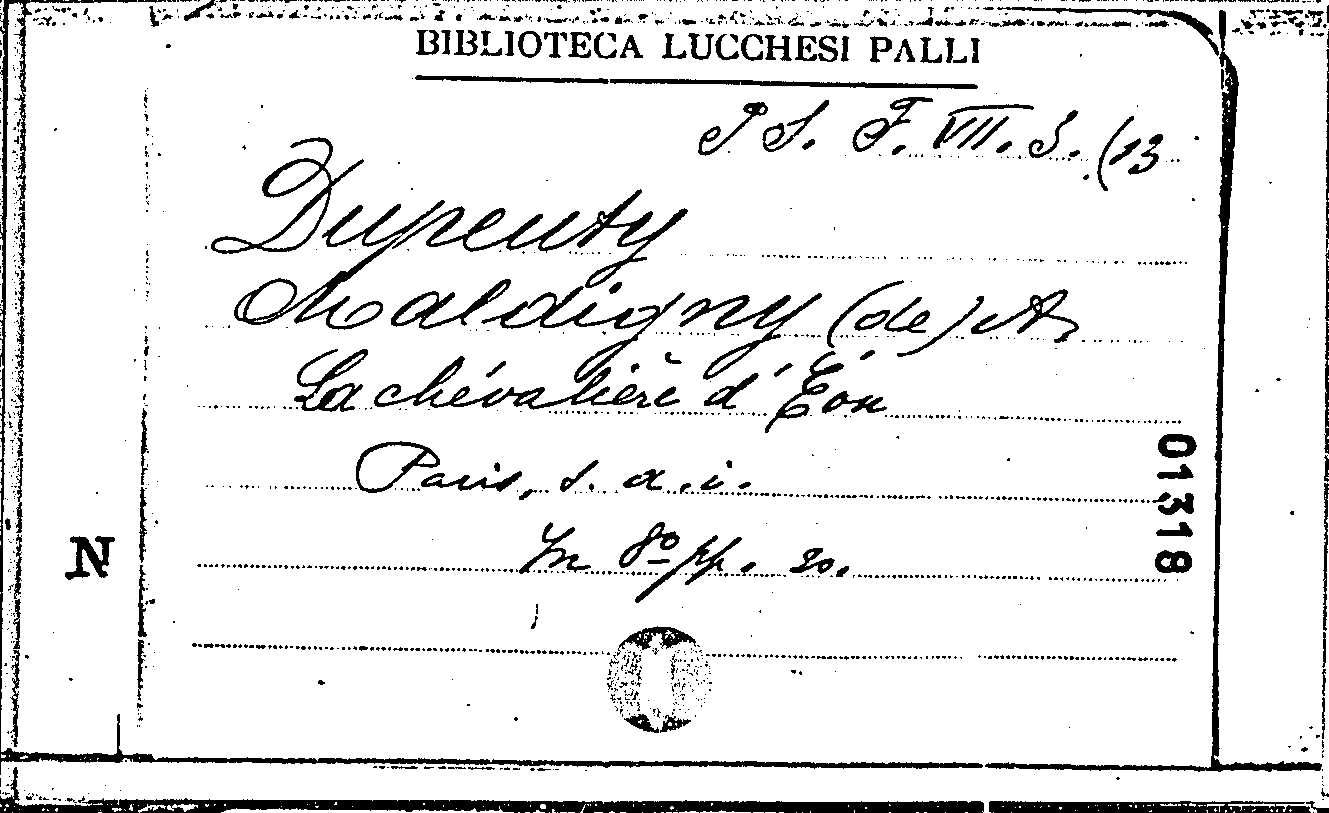 BIBLIOTECA LUCCHESI PALLI
P S. F. VII. 3. (13
Dupeuty
Maldigny (de) A.
La chévalière d'Éon
Paris, s. a. i.
In 8º pp. 20.
01318
N